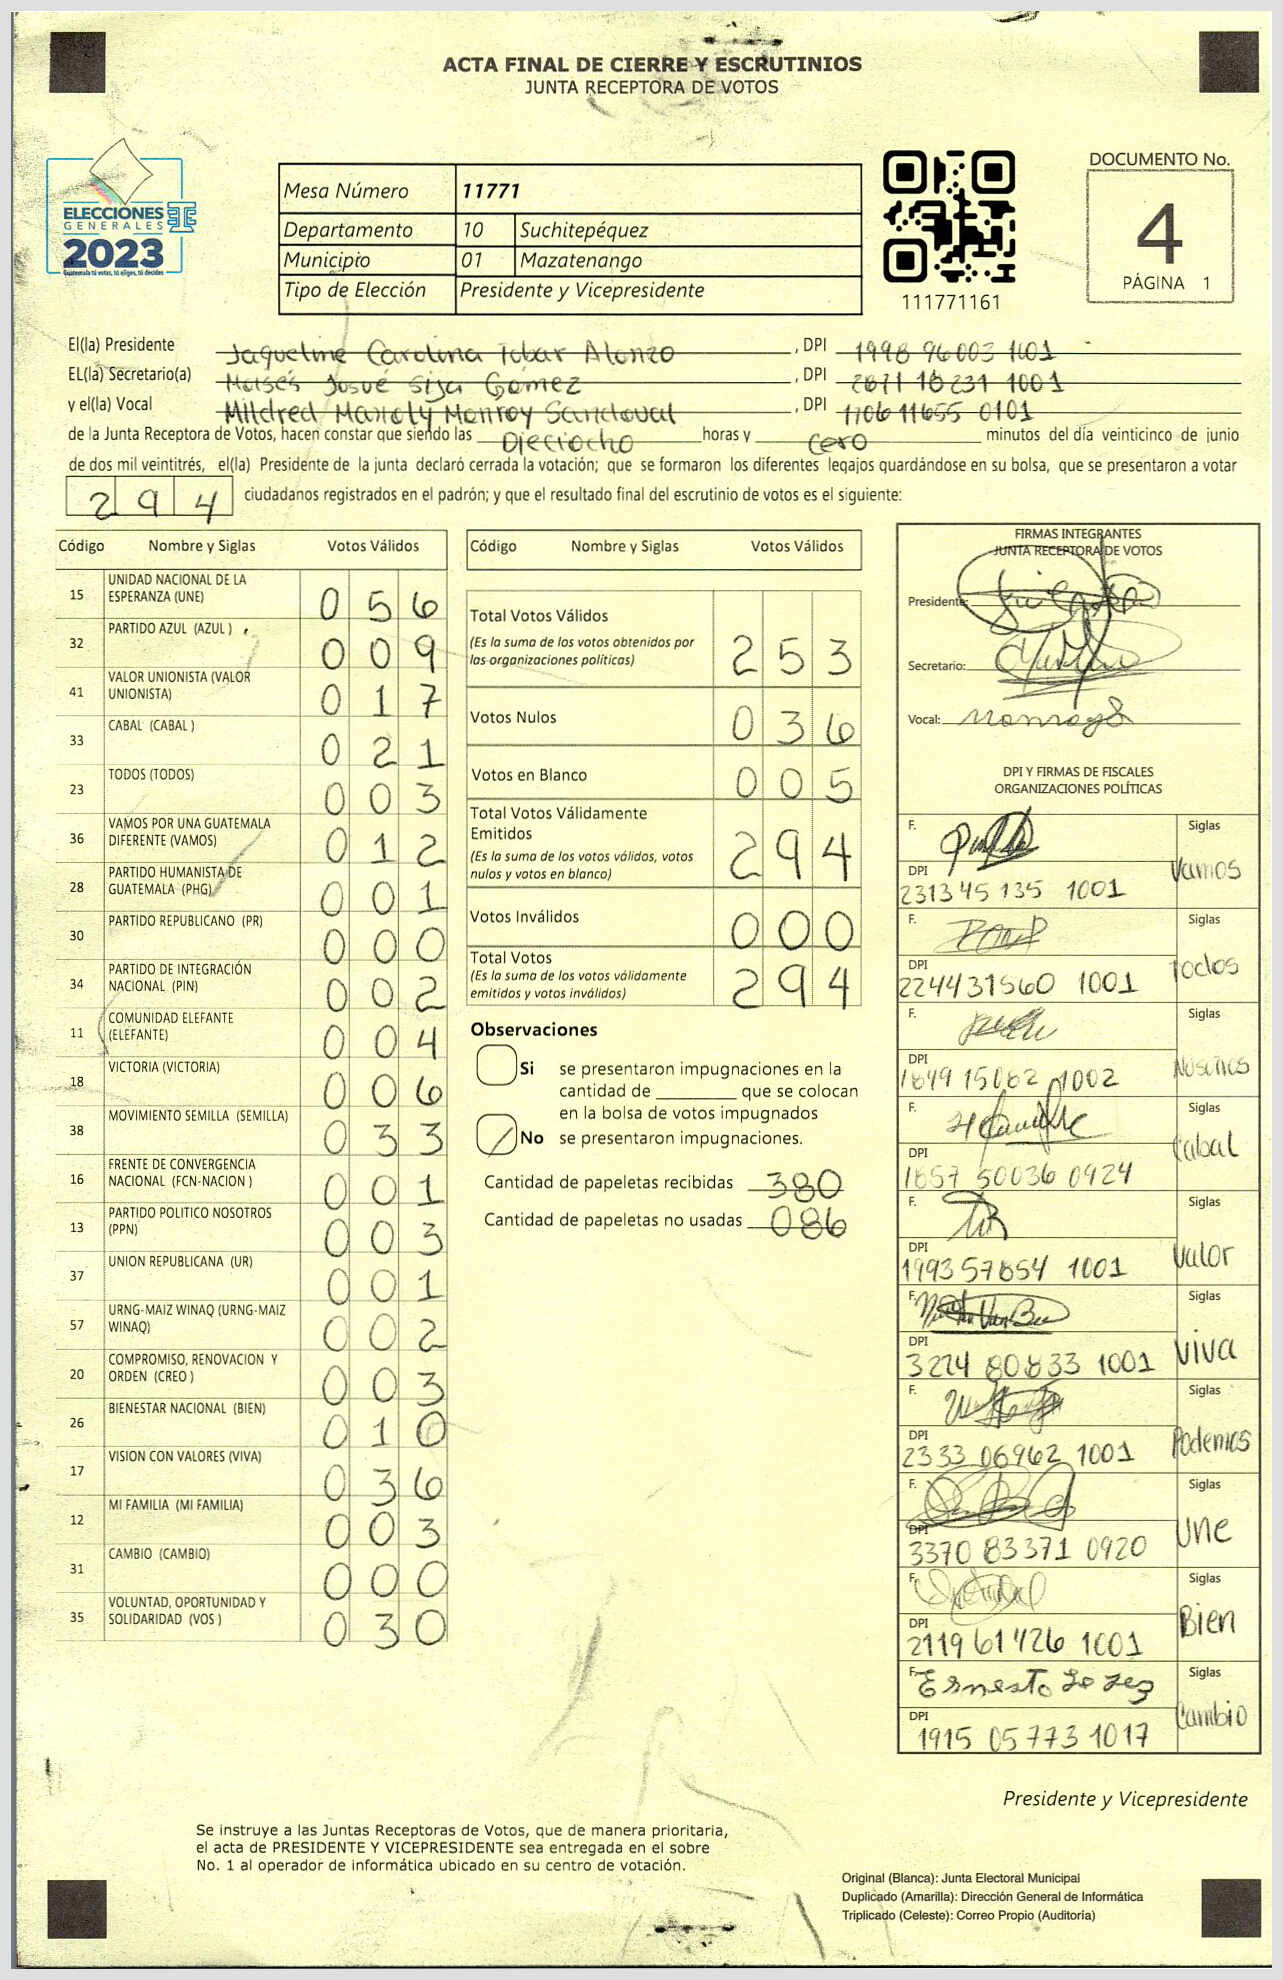 ACTA FINAL DE CIERRE Y ESCRUTINIOS
JUNTA RECEPTORA DE VOTOS
ELECCIONES
GENERALES
2023
Guatemala tú votas, tú eliges, tú decides
Mesa Número 11771
Departamento 10 Suchitepéquez
Municipio 01 Mazatenango
Tipo de Elección Presidente y Vicepresidente
111771161
DOCUMENTO No.
4
PÁGINA 1
El(la) Presidente Jaqueline Carolina Tobar Alonzo, DPI 1998 96003 1001
EL(la) Secretario(a) Moisés Josué Sija Gómez, DPI 2871 18231 1001
y el(la) Vocal Mildred Manoly Monroy Sandoval, DPI 1706 11655 0101
de la Junta Receptora de Votos, hacen constar que siendo las Dieciocho horas y cero minutos del día veinticinco de junio
de dos mil veintitrés, el(la) Presidente de la junta declaró cerrada la votación; que se formaron los diferentes legajos guardándose en su bolsa, que se presentaron a votar
294 ciudadanos registrados en el padrón; y que el resultado final del escrutinio de votos es el siguiente:
Código Nombre y Siglas Votos Válidos
15 UNIDAD NACIONAL DE LA ESPERANZA (UNE) 056
32 PARTIDO AZUL (AZUL ) 009
41 VALOR UNIONISTA (VALOR UNIONISTA) 017
33 CABAL (CABAL ) 021
23 TODOS (TODOS) 003
36 VAMOS POR UNA GUATEMALA DIFERENTE (VAMOS) 012
28 PARTIDO HUMANISTA DE GUATEMALA (PHG) 001
30 PARTIDO REPUBLICANO (PR) 000
34 PARTIDO DE INTEGRACIÓN NACIONAL (PIN) 002
11 COMUNIDAD ELEFANTE (ELEFANTE) 004
18 VICTORIA (VICTORIA) 006
38 MOVIMIENTO SEMILLA (SEMILLA) 033
16 FRENTE DE CONVERGENCIA NACIONAL (FCN-NACION ) 001
13 PARTIDO POLITICO NOSOTROS (PPN) 003
37 UNION REPUBLICANA (UR) 001
57 URNG-MAIZ WINAQ (URNG-MAIZ WINAQ) 002
20 COMPROMISO, RENOVACION Y ORDEN (CREO ) 003
26 BIENESTAR NACIONAL (BIEN) 010
17 VISION CON VALORES (VIVA) 036
12 MI FAMILIA (MI FAMILIA) 003
31 CAMBIO (CAMBIO) 000
35 VOLUNTAD, OPORTUNIDAD Y SOLIDARIDAD (VOS ) 030
Código Nombre y Siglas Votos Válidos
Total Votos Válidos
(Es la suma de los votos obtenidos por
las organizaciones políticas) 253
Votos Nulos 036
Votos en Blanco 005
Total Votos Válidamente
Emitidos
(Es la suma de los votos válidos, votos
nulos y votos en blanco) 294
Votos Inválidos 000
Total Votos
(Es la suma de los votos válidamente
emitidos y votos inválidos) 294
Observaciones
Si se presentaron impugnaciones en la
cantidad de ________ que se colocan
en la bolsa de votos impugnados
No se presentaron impugnaciones.
Cantidad de papeletas recibidas 380
Cantidad de papeletas no usadas 086
FIRMAS INTEGRANTES
JUNTA RECEPTORA DE VOTOS
Presidente:
Secretario:
Vocal: Monroy
DPI Y FIRMAS DE FISCALES
ORGANIZACIONES POLÍTICAS
F. Siglas
DPI Vamos
231345135 1001
F. Siglas
DPI Todos
224431560 1001
F. Siglas
DPI
1849 15062 1002
F. Siglas
DPI Cabal
1857 50036 0924
F. Siglas
DPI Valor
1993 57854 1001
F. Siglas
DPI Viva
3224 80833 1001
F. Siglas
DPI Podemos
2333 06962 1001
F. Siglas
DPI Une
3370 83371 0920
F. Siglas
DPI Bien
2119 61426 1001
F. Ernesto Lopez Siglas
DPI Cambio
1915 05773 1017
Presidente y Vicepresidente
Se instruye a las Juntas Receptoras de Votos, que de manera prioritaria,
el acta de PRESIDENTE Y VICEPRESIDENTE sea entregada en el sobre
No. 1 al operador de informática ubicado en su centro de votación.
Original (Blanca): Junta Electoral Municipal
Duplicado (Amarilla): Dirección General de Informática
Triplicado (Celeste): Correo Propio (Auditoría)